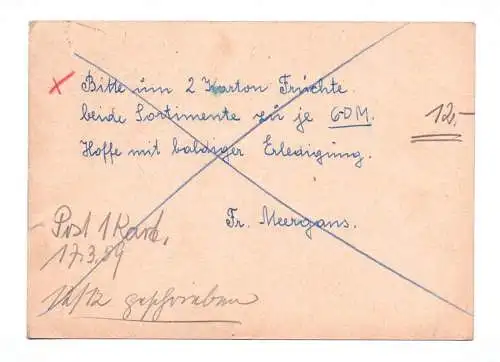 Bitte um 2 Karton Früchte.
beide Sortimente zu je 6 DM.
12,-
Hoffe mit baldiger Erledigung.
Fr. Meergans.
Post 1 Kart.
17.3.89
geschrieben